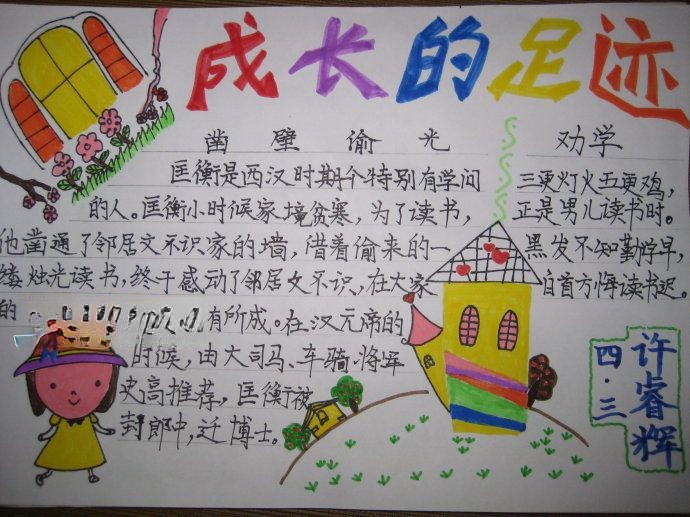 成长的足迹
凿壁偷光
匡衡是西汉时期个特别有学问
的人。匡衡小时候家境贫寒，为了读书，
他凿通了邻居文不识家的墙，借着偷来的一
缕烛光读书，终于感动了邻居文不识，在大家
的
有所成。在汉元帝的
时候，由大司马、车骑·将军
史高推荐，匡衡被
封郎中，迁博士。
劝学
三更灯火五更鸡，
正是男儿读书时。
黑发不知勤学早，
白首方悔读书迟。
许睿辉
四·三